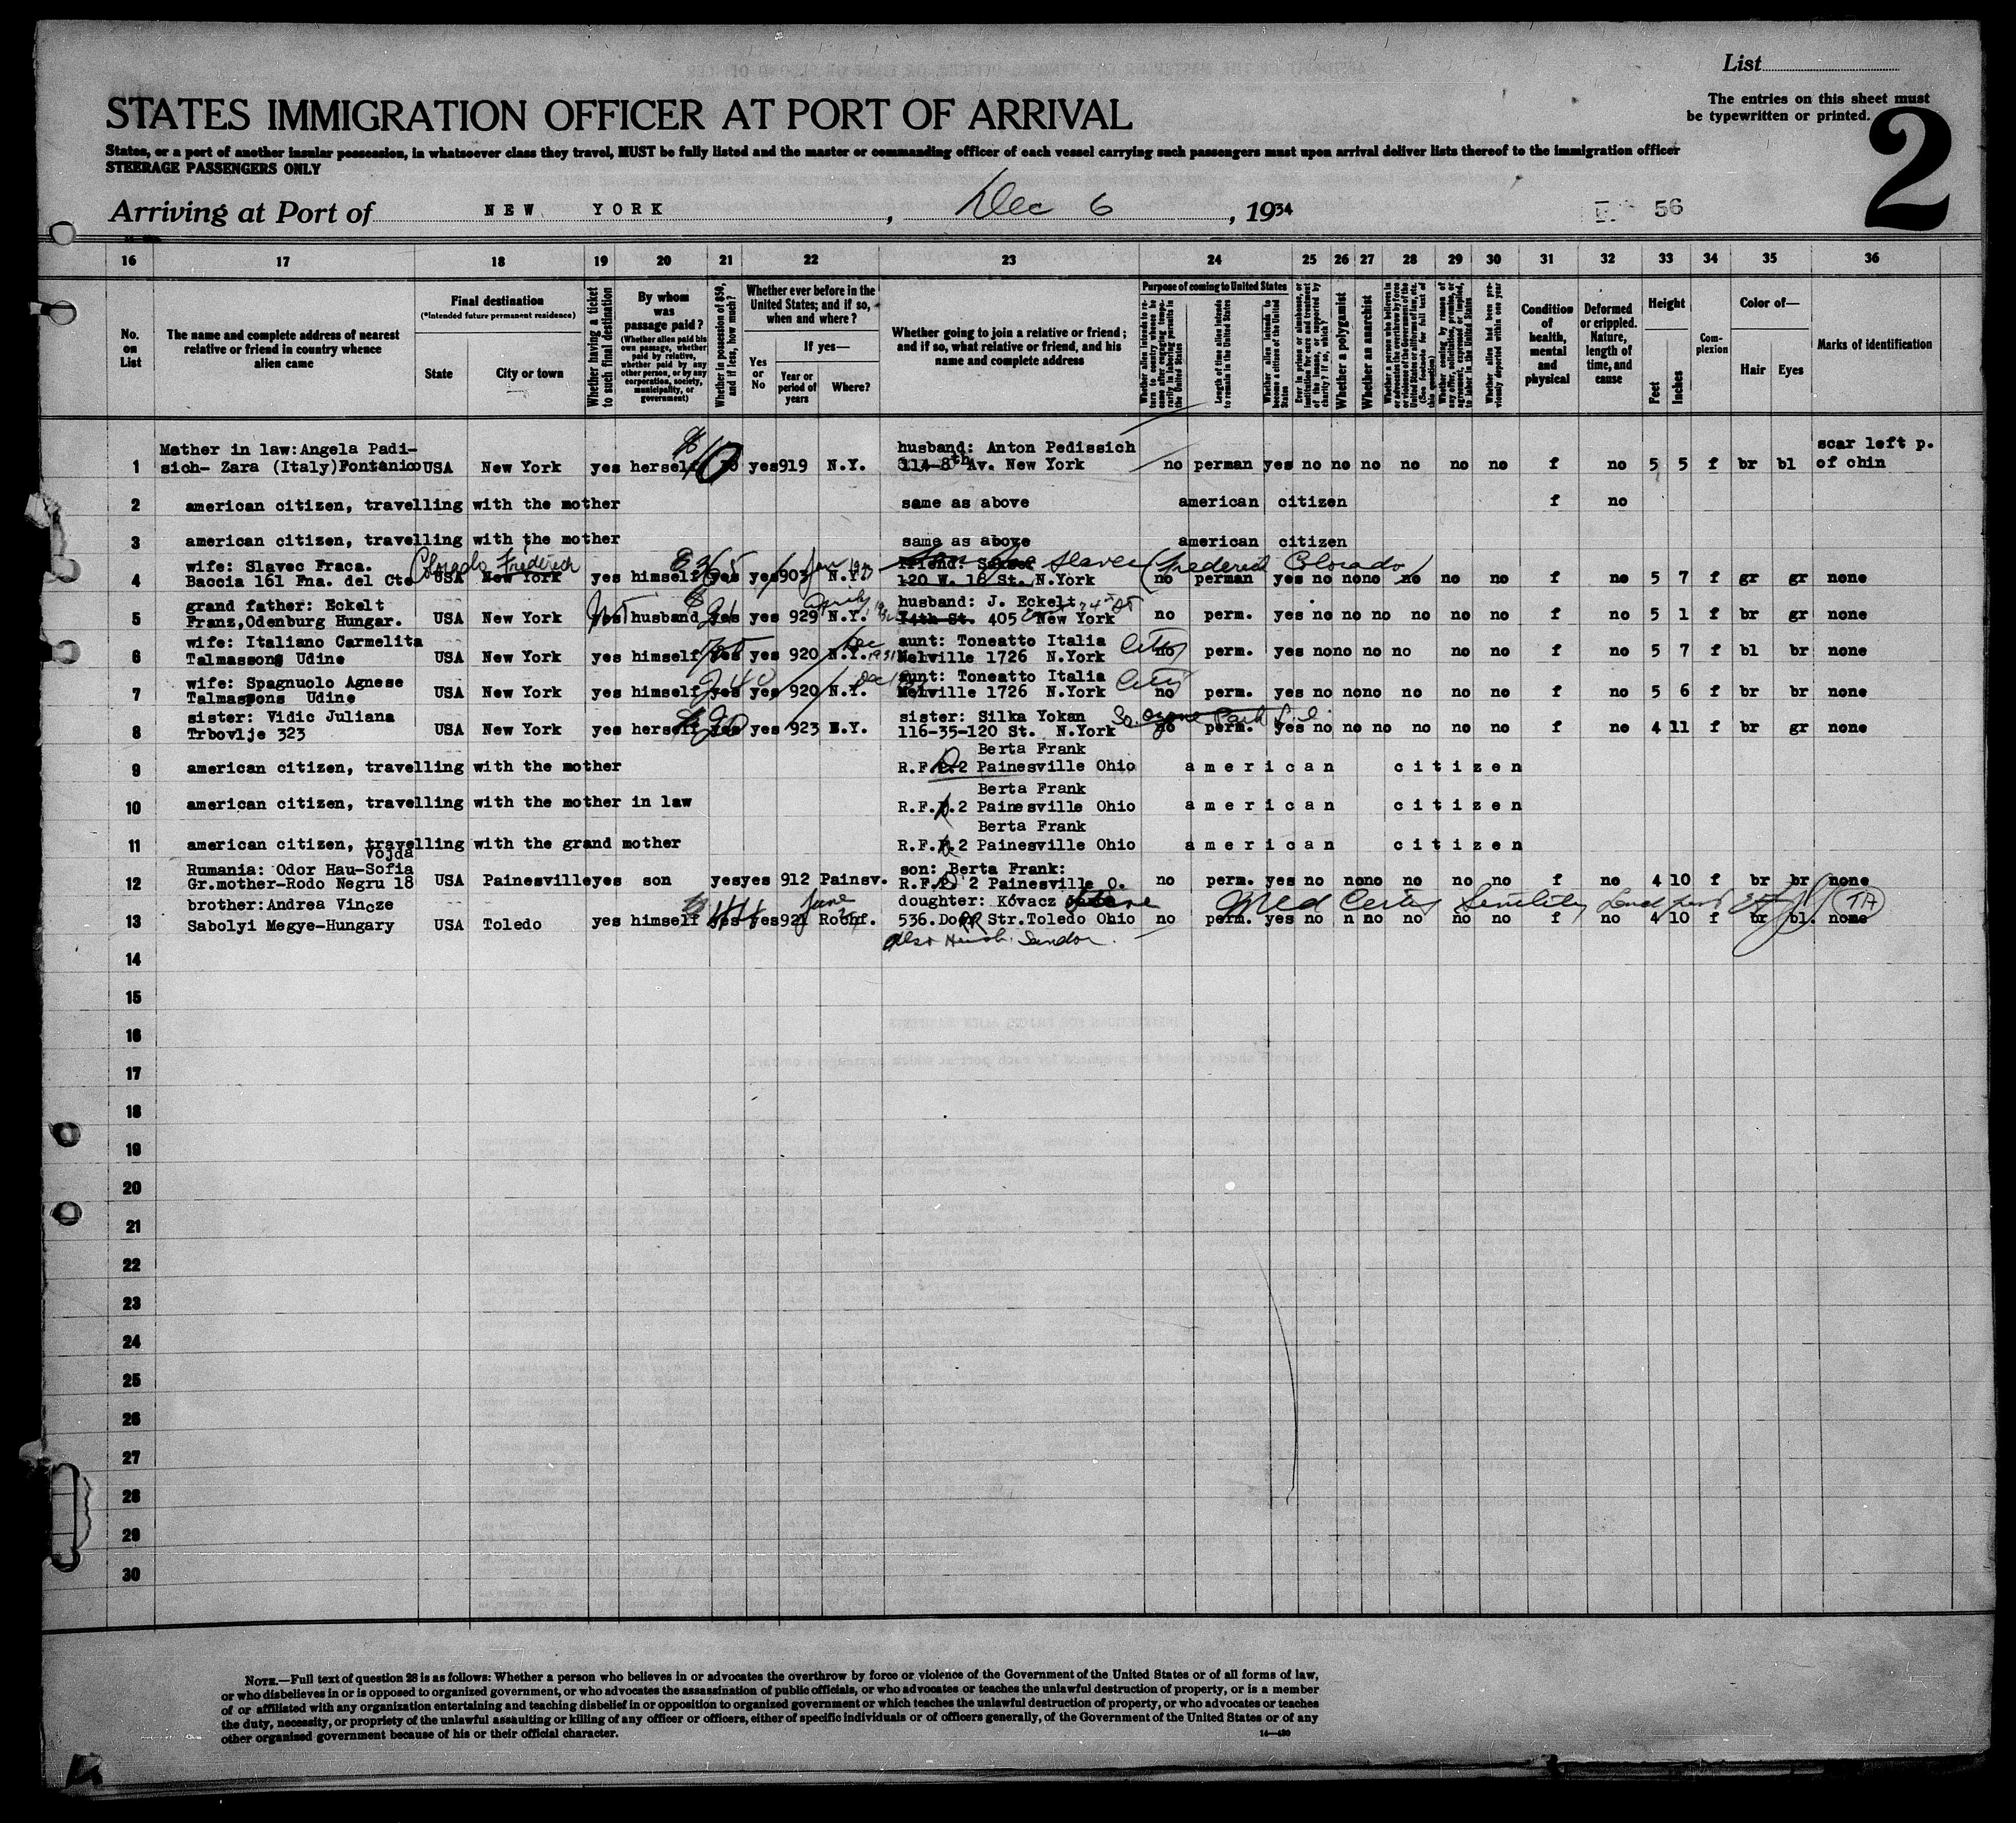 List
The entries on this sheet must
be typewritten or printed.
2
STATES IMMIGRATION OFFICER AT PORT OF ARRIVAL
States, or a port of another insular possession, in whatsoever class they travel, MUST be fully listed and the master or commanding officer of each vessel carrying such passengers must upon arrival deliver lists thereof to the immigration officer
STEERAGE PASSENGERS ONLY
Arriving at Port of NEW YORK, Dec 6, 1934
56
16 17 18 19 20 21 22 23 24 25 26 27 28 29 30 31 32 33 34 35 36
No. on List
The name and complete address of nearest relative or friend in country whence alien came
Final destination
(*Intended future permanent residence)
State
City or town
Whether having a ticket to such final destination
By whom was passage paid?
(Whether alien paid his own passage, whether paid by relative, whether paid by any other person, or by any corporation, society, municipality, or government)
Whether in possession of $50, and if less, how much?
Whether ever before in the United States; and if so, when and where?
Yes or No
If yes—
Year or period of years
Where?
Whether going to join a relative or friend; and if so, what relative or friend, and his name and complete address
Purpose of coming to United States
Length of time alien intends to remain in the United States
Whether alien intends to become a citizen of the United States
Whether a polygamist
Whether an anarchist
Condition of health, mental and physical
Deformed or crippled. Nature, length of time, and cause
Height
Feet
Inches
Complexion
Color of—
Hair
Eyes
Marks of identification
Mother in law: Angela Padi- husband: Anton Pedissich scar left p.
1 sich- Zara (Italy) Fontanico USA New York yes herself 70 yes 919 N.Y. 114-8th Av. New York no perman yes no no no no no no f no 5 5 f br bl of chin
2 american citizen, travelling with the mother same as above american citizen f no
3 american citizen, travelling with the mother same as above american citizen
wife: Slavec Fraca. Colorado Frederick $365 Jan friend: Slavec (Frederick Colorado)
4 Baccia 161 Fna. del Cte USA New York yes himself yes yes 903 N.Y. 120 W. 18 St. N.York no perman yes no no no no no no f no 5 7 f gr gr none
grand father: Eckelt April husband: J. Eckelt
5 Franz, Odenburg Hungar. USA New York yes husband yes yes 929 N.Y. 74th St. 405 New York no perm. yes no no no no no no f no 5 1 f br gr none
wife: Italiano Carmelita Dec 1931 aunt: Toneatto Italia City
6 Talmassons Udine USA New York yes himself yes yes 920 N.Y. Melville 1726 N.York no perm. yes no no no no no no f no 5 7 f bl br none
wife: Spagnuolo Agnese 240 Dec aunt: Toneatto Italia City
7 Talmassons Udine USA New York yes himself yes yes 920 N.Y. Melville 1726 N.York no perm. yes no no no no no no f no 5 6 f br br none
sister: Vidic Juliana sister: Silka Yokan So. Ozone Park L.I.
8 Trbovlje 323 USA New York yes herself yes yes 923 N.Y. 116-35-120 St. N.York no perm. yes no no no no no no f no 4 11 f br gr none
Berta Frank
9 american citizen, travelling with the mother R.F.D.2 Painesville Ohio american citizen
Berta Frank
10 american citizen, travelling with the mother in law R.F.D.2 Painesville Ohio american citizen
Berta Frank
11 american citizen, travelling with the grand mother R.F.D.2 Painesville Ohio american citizen
Vojda
Rumania: Odor Hau-Sofia son: Berta Frank:
12 Gr.mother-Rodo Negru 18 USA Painesville yes son yes yes 912 Painsv. R.F.D. 2 Painesville O. no perm. yes no no no no no no f no 4 10 f br br none
brother: Andrea Vincze June doughter: Kóvacz Med Certy Senility
13 Sabolyi Megye-Hungary USA Toledo yes himself yes yes 921 536. Dorr Str. Toledo Ohio no perm. yes no n no no no no f no 4 10 f br bl. none
also Sandor
14
15
16
17
18
19
20
21
22
23
24
25
26
27
28
29
30
NOTE.—Full text of question 28 is as follows: Whether a person who believes in or advocates the overthrow by force or violence of the Government of the United States or of all forms of law,
or who disbelieves in or is opposed to organized government, or who advocates the assassination of public officials, or who advocates or teaches the unlawful destruction of property, or is a member
of or affiliated with any organization entertaining and teaching disbelief in or opposition to organized government or which teaches the unlawful destruction of property, or who advocates or teaches
the duty, necessity, or propriety of the unlawful assaulting or killing of any officer or officers, either of specific individuals or of officers generally, of the Government of the United States or of any
other organized government because of his or their official character.
14—420